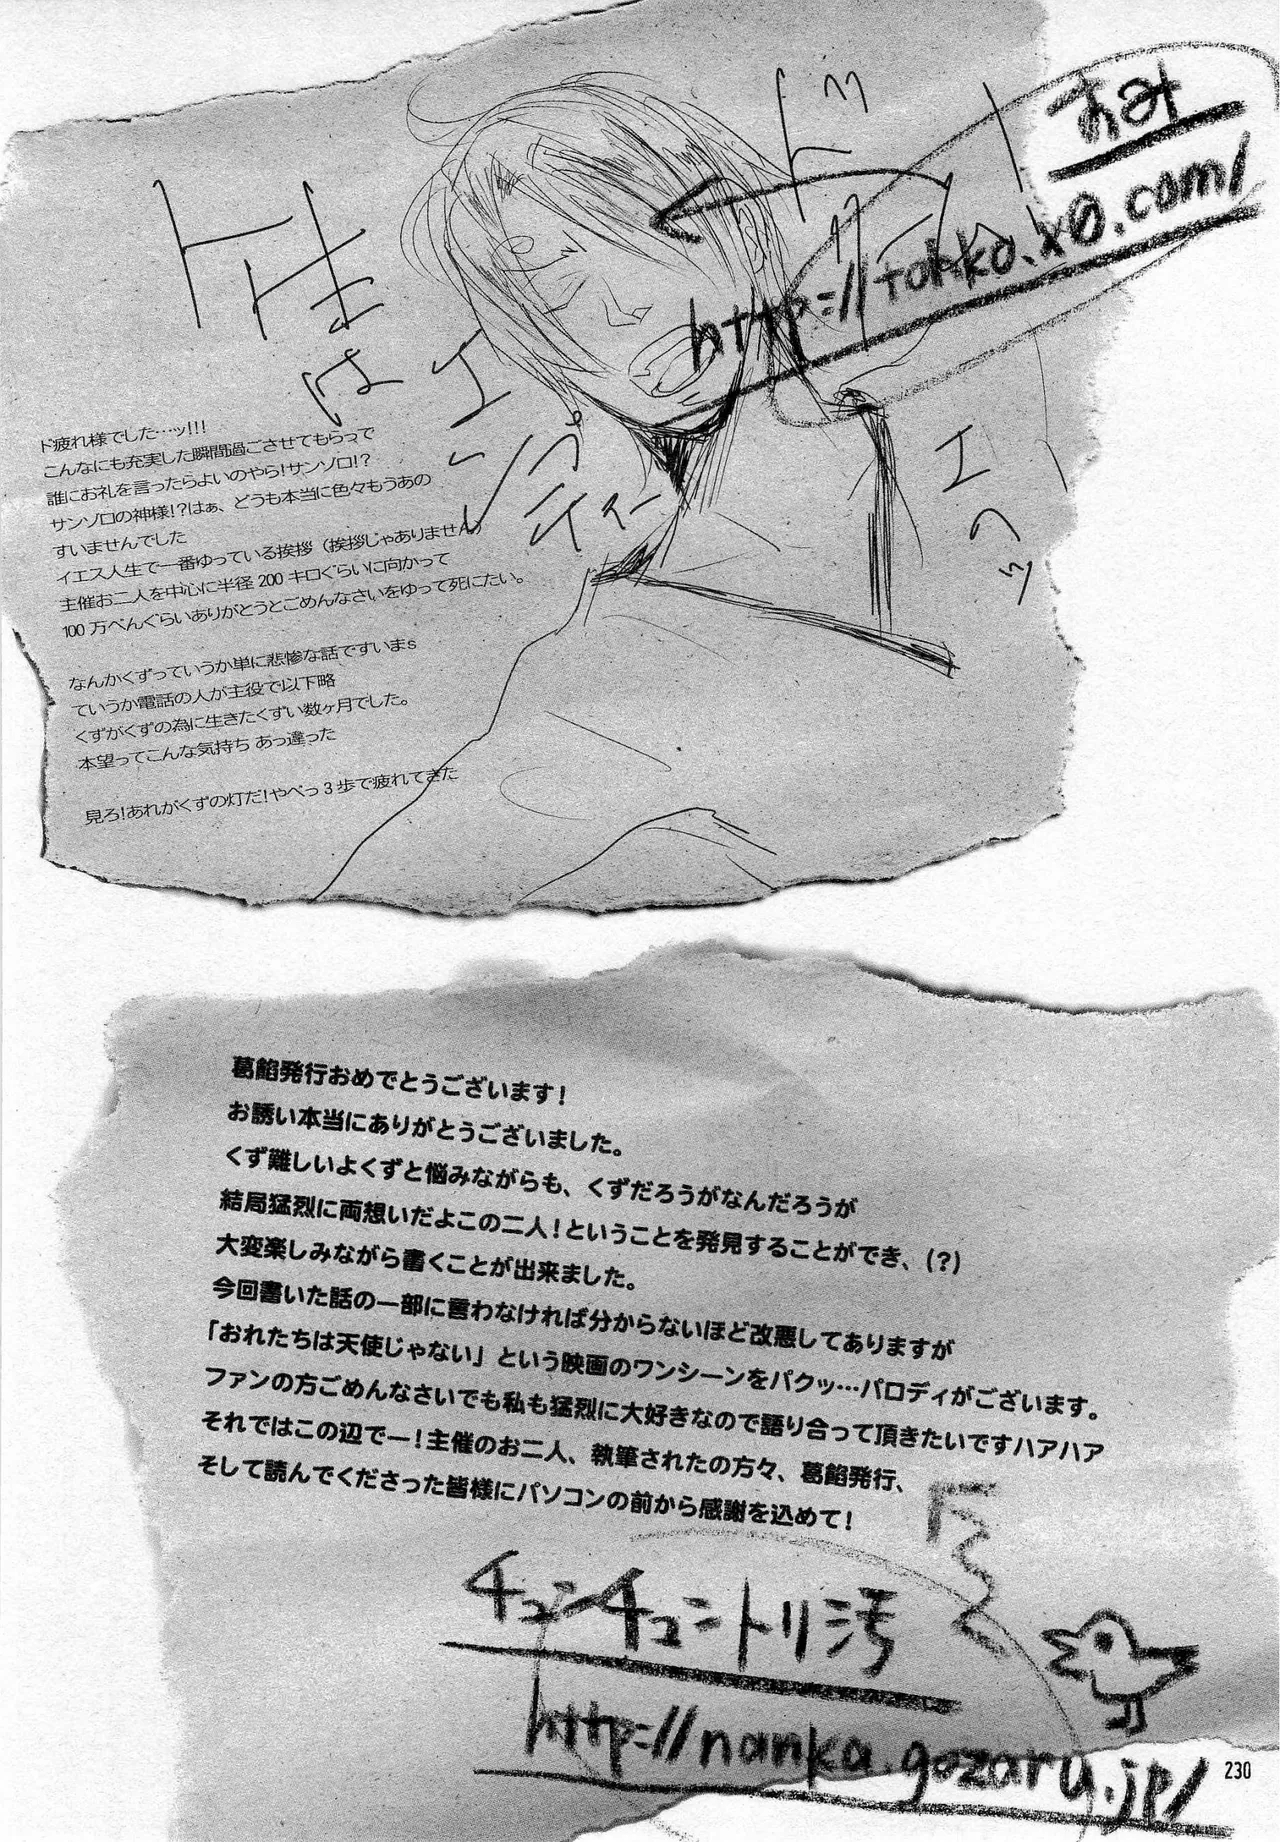 あみ
http://tohko.x0.com/
ド疲れ様でした…ッ!!!
こんなにも充実した瞬間過ごさせてもらって
誰にお礼を言ったらよいのやら!サンゾロ!?
サンゾロの神様!?はぁ、どうも本当に色々もうあの
すいませんでした
イエス人生で一番ゆっている挨拶（挨拶じゃありません）
主催お二人を中心に半径 200 キロぐらいに向かって
100 万べんぐらいありがとうとごめんなさいをゆって死にたい。
なんかくずっていうか単に悲惨な話ですいまs
ていうか電話の人が主役で以下略
くずがくずの為に生きたくずい数ヶ月でした。
本望ってこんな気持ち あっ違った
見ろ!あれがくずの灯だ!やべっ 3 歩で疲れてきた
は
エンプティー
エッ
葛餡発行おめでとうございます!
お誘い本当にありがとうございました。
くず難しいよくずと悩みながらも、くずだろうがなんだろうが
結局猛烈に両想いだよこの二人!ということを発見することができ、(?)
大変楽しみながら書くことが出来ました。
今回書いた話の一部に言わなければ分からないほど改悪してありますが
「おれたちは天使じゃない」という映画のワンシーンをパクッ…パロディがございます。
ファンの方ごめんなさいでも私も猛烈に大好きなので語り合って頂きたいですハアハア
それではこの辺でー!主催のお二人、執筆されたの方々、葛餡発行、
そして読んでくださった皆様にパソコンの前から感謝を込めて!
チュンチュントリ汚
http://nanka.gozaru.jp/
230